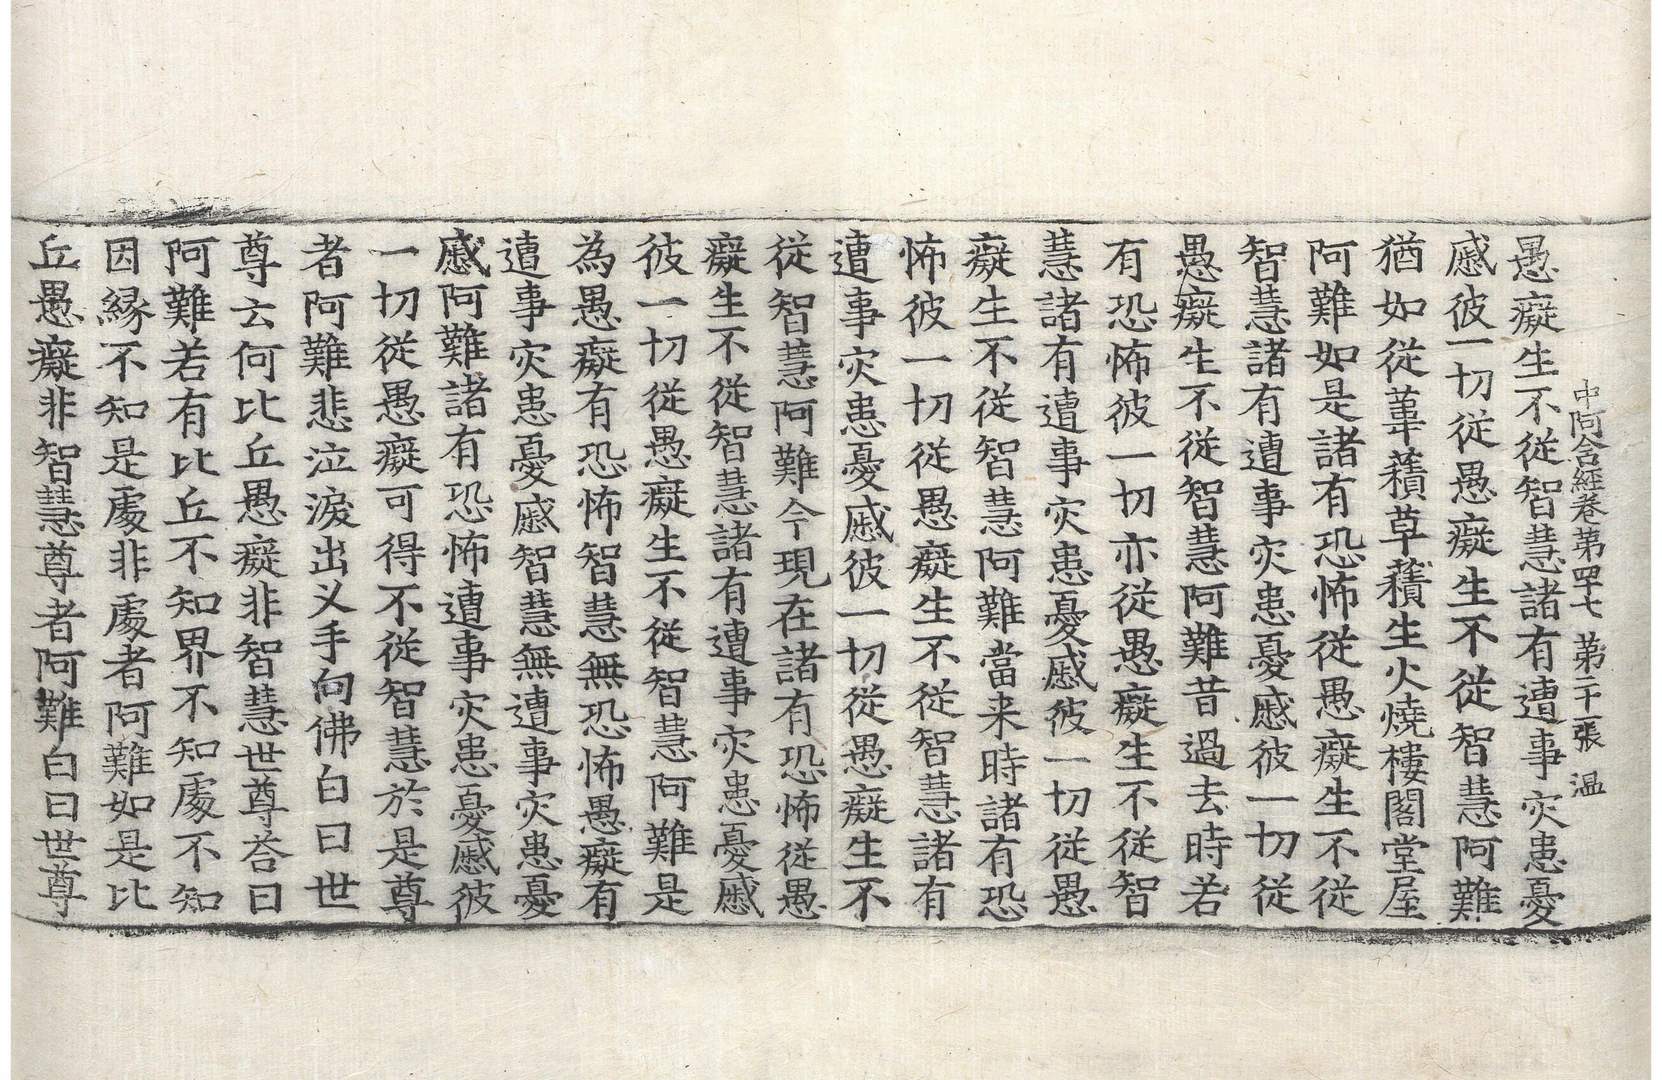 中阿含經卷第四七 第二十張 溫
愚癡生不從智慧諸有遭事灾患憂
慼彼一切從愚癡生不從智慧阿難
猶如從葦𧂐草𧂐生火燒樓閣堂屋
阿難如是諸有恐怖從愚癡生不從
智慧諸有遭事灾患憂慼彼一切從
愚癡生不從智慧阿難昔過去時若
有恐怖彼一切亦從愚癡生不從智
慧諸有遭事灾患憂慼彼一切從愚
癡生不從智慧阿難當来時諸有恐
怖彼一切從愚癡生不從智慧諸有
遭事灾患憂慼彼一切從愚癡生不
從智慧阿難今現在諸有恐怖從愚
癡生不從智慧諸有遭事灾患憂慼
彼一切從愚癡生不從智慧阿難是
為愚癡有恐怖智慧無恐怖愚癡有
遭事灾患憂慼智慧無遭事灾患憂
慼阿難諸有恐怖遭事灾患憂慼彼
一切從愚癡可得不從智慧於是尊
者阿難悲泣淚出叉手向佛白曰世
尊云何比丘愚癡非智慧世尊荅曰
阿難若有比丘不知界不知處不知
因緣不知是處非處者阿難如是比
丘愚癡非智慧尊者阿難白曰世尊